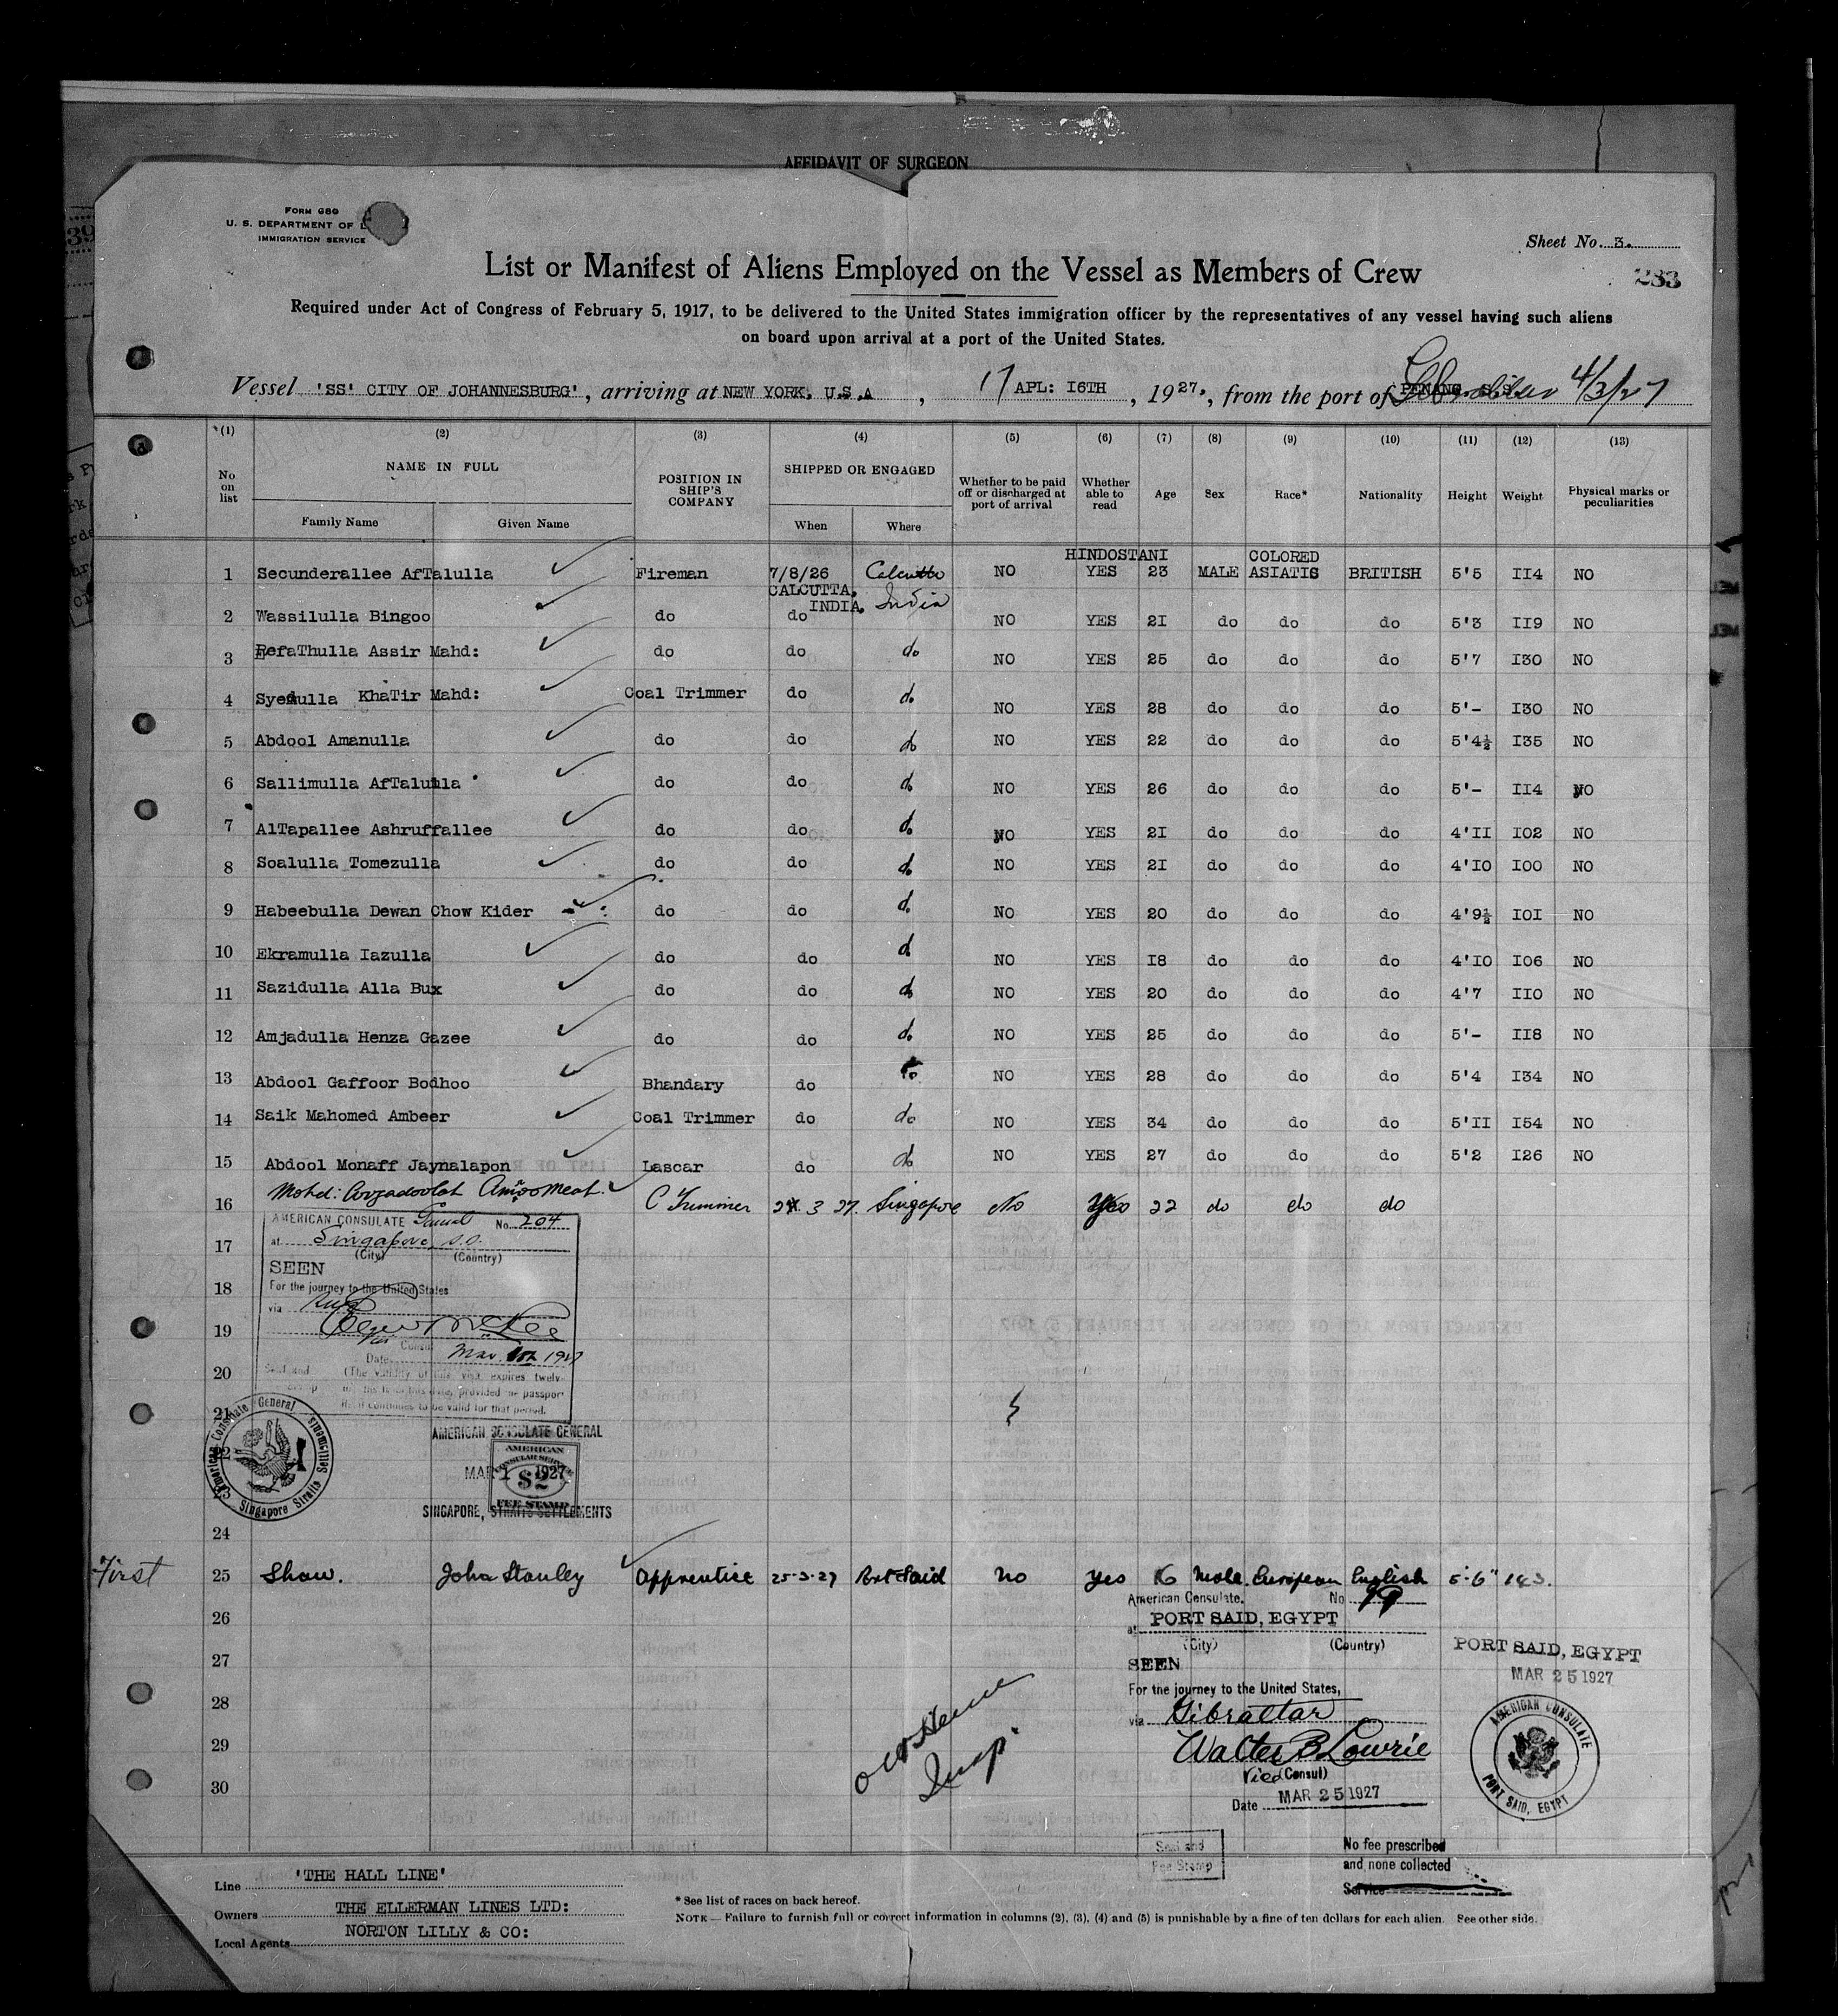 AFFIDAVIT OF SURGEON
FORM 689
U. S. DEPARTMENT OF
IMMIGRATION SERVICE
Sheet No. 3.
233
List or Manifest of Aliens Employed on the Vessel as Members of Crew
Required under Act of Congress of February 5, 1917, to be delivered to the United States immigration officer by the representatives of any vessel having such aliens
on board upon arrival at a port of the United States.
Vessel 'SS' CITY OF JOHANNESBURG', arriving at NEW YORK. U.S.A, 17 APL: I6TH, 1927., from the port of PENANG S.S. Gibraltar 4/3/27
(1) (2) (3) (4) (5) (6) (7) (8) (9) (10) (11) (12) (13)
No on list NAME IN FULL POSITION IN SHIP'S COMPANY SHIPPED OR ENGAGED Whether to be paid off or discharged at port of arrival Whether able to read Age Sex Race* Nationality Height Weight Physical marks or peculiarities
Family Name Given Name When Where
HINDOSTANI COLORED
1 Secunderallee AfTalulla Fireman 7/8/26 Calcutta NO YES 23 MALE ASIATIS BRITISH 5'5 II4 NO
CALCUTTA, INDIA. India
2 Wassilulla Bingoo do do NO YES 2I do do do 5'3 II9 NO
3 RefaThulla Assir Mahd: do do do NO YES 25 do do do 5'7 I30 NO
4 Syedulla KhaTir Mahd: Coal Trimmer do do NO YES 28 do do do 5'- I30 NO
5 Abdool Amanulla do do do NO YES 22 do do do 5'4½ I35 NO
6 Sallimulla AfTalulla do do do NO YES 26 do do do 5'- II4 NO
7 AlTapallee Ashruffallee do do do NO YES 2I do do do 4'II I02 NO
8 Soalulla Tomezulla do do do NO YES 2I do do do 4'IO I00 NO
9 Habeebulla Dewan Chow Kider do do do NO YES 20 do do do 4'9½ IOI NO
10 Ekramulla Iazulla do do do NO YES I8 do do do 4'IO I06 NO
11 Sazidulla Alla Bux do do do NO YES 20 do do do 4'7 IIO NO
12 Amjadulla Henza Gazee do do do NO YES 25 do do do 5'- II8 NO
13 Abdool Gaffoor Bodhoo Bhandary do do NO YES 28 do do do 5'4 I34 NO
14 Saik Mahomed Ambeer Coal Trimmer do do NO YES 34 do do do 5'II I54 NO
15 Abdool Monaff Jaynalapon Lascar do do NO YES 27 do do do 5'2 I26 NO
16 Mohd: C Trimmer 3 27. Singapore No Yes 22 do do do
AMERICAN CONSULATE No. 204
17
at Singapore, S.S.
(City) (Country)
SEEN
18
For the journey to the United States
via
19
Consul
Date Mar. 1927
20
(The validity of this visa expires twelve
provided the passport
continues to be valid for that period.
21
American Consulate General Singapore Straits Settlements
22
AMERICAN CONSULATE GENERAL
AMERICAN CONSULAR SERVICE $2 FEE STAMP
MAR 1 1927
SINGAPORE, STRAITS SETTLEMENTS
24
First 25 Shaw. John Stanley Apprentice 25-3-27 Port Said No Yes 16 Male. European English 5'-6" 143.
American Consulate. No 79
26
at PORT SAID, EGYPT
(City) (Country)
PORT SAID, EGYPT
MAR 25 1927
27
SEEN
28
For the journey to the United States,
via Gibraltar
29
Walter B Lowrie
Vice (Consul)
Insp.
AMERICAN CONSULATE PORT SAID, EGYPT
30
Date MAR 25 1927
Seal and
Fee Stamp
No fee prescribed
and none collected
Service
Line 'THE HALL LINE'
Owners THE ELLERMAN LINES LTD:
Local Agents NORTON LILLY & CO:
* See list of races on back hereof.
NOTE — Failure to furnish full or correct information in columns (2), (3), (4) and (5) is punishable by a fine of ten dollars for each alien. See other side.